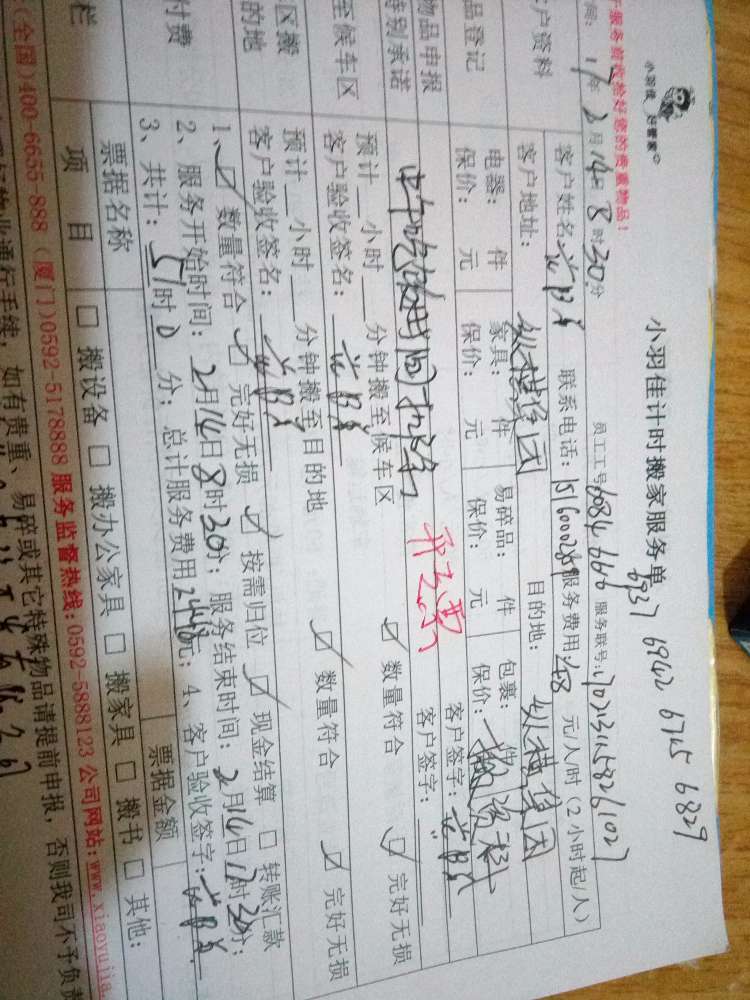 小羽佳 好管家
小羽佳计时搬家服务单
6937 6942 6725 6829
于服务前收拾好您的贵重物品！
员工工号: 6984 6666 服务联号: 1702131158261027
间: 17年2月14日8时30分
户资料
客户姓名 联系电话: 服务费用: 48 元/人/时(2小时起/人)
客户地址: 纵横集团 目的地: 纵横集团
品登记
电器: 件 家具: 件 易碎品: 件 包裹: 件
保价: 元 保价: 元 保价: 元 保价: 搬资料
物品申报 客户签字:
特别承诺 中午吃饭时间扣除 开支票 客户签字:
至候车区
预计__小时__分钟搬至候车区 数量符合 完好无损
客户验收签名:
区搬
的地
预计__小时__分钟搬至目的地 数量符合 完好无损
客户验收签名:
付费
1、数量符合 完好无损 按需归位 现金结算 □ 转账汇款
2、服务开始时间: 2月14日8时30分; 服务结束时间: 2月14日17时30分;
3、共计: 51时0分; 总计服务费用2448元; 4、客户验收签字:
栏
票据名称 票据金额
项 目 □ 搬设备 □ 搬办公家具 □ 搬家具 □ 搬书 □ 其他:
(全国)400-6655-888 (厦门)0592-5178888 服务监督热线:0592-5888123 公司网站:www.xiaoyujia.
物业通行手续, 如有贵重、易碎或其它特殊物品请提前申报, 否则我司不予负责